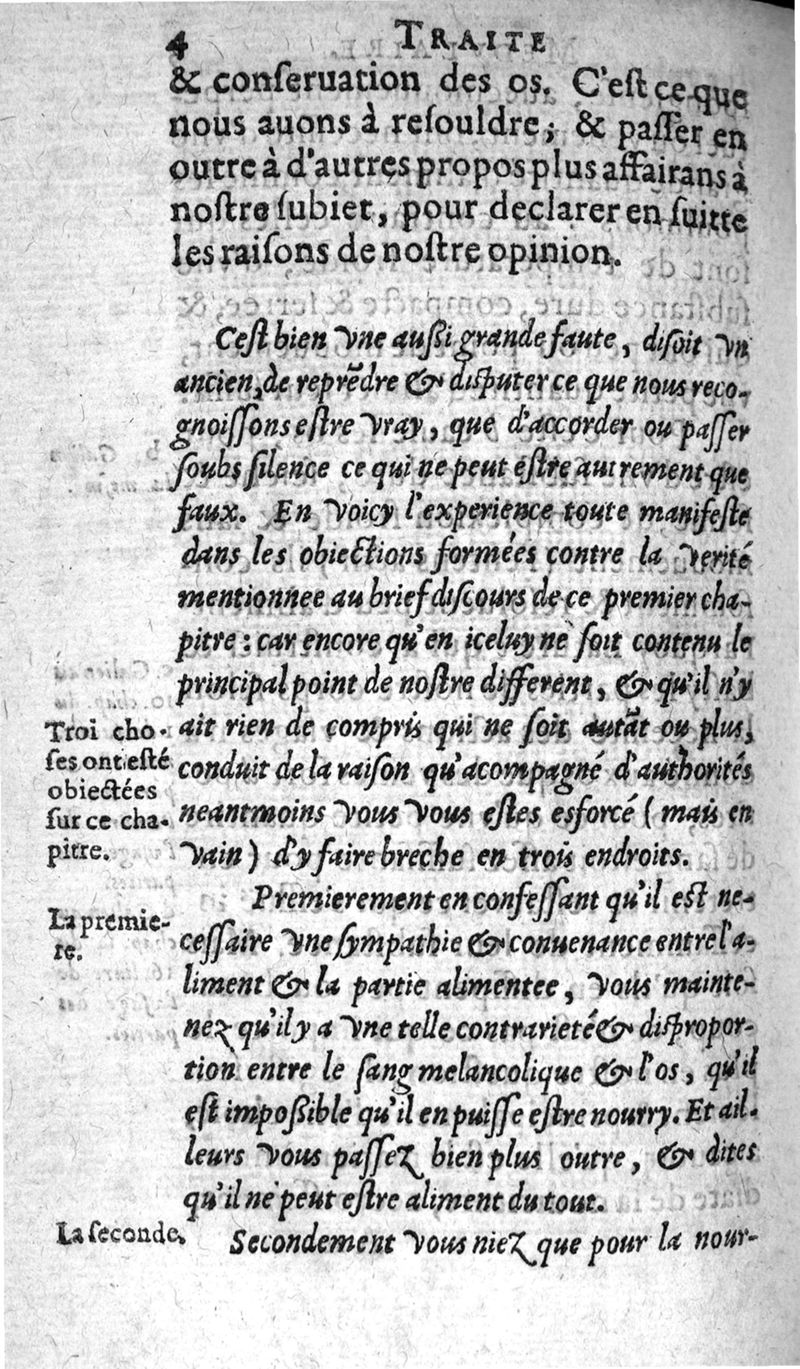 4 TRAITE
& conſeruation des os. C'eſt ce que
nous auons à reſouldre; & paſſer en
outre à d'autres propos plus affairans à
noſtre ſubiet, pour declarer en ſuitte
les raiſons de noſtre opinion.
Ceſt bien vne außi grande faute, diſoit vn
ancien, de reprẽdre & diſputer ce que nous reco-
gnoiſſons eſtre vray, que d'accorder ou paſſer
ſoubs ſilence ce qui ne peut eſtre autrement que
faux. En voicy l'experience toute manifeſte
dans les obiections formées contre la verité
mentionnee au brief diſcours de ce premier cha-
pitre: car encore qu'en iceluy ne ſoit contenu le
principal point de noſtre different, & qu'il n'y
ait rien de compris qui ne ſoit autãt ou plus,
conduit de la raiſon qu'acompagné d'authorités
neantmoins vous vous eſtes esforcé (mais en
vain) d'y faire breche en trois endroits.
Troi cho-
ſes ont eſté
obiectées
ſur ce cha-
pitre.
Premierement en confeſſant qu'il eſt ne-
ceſſaire vne ſympathie & conuenance entre l'a-
liment & la partie alimentee, vous mainte-
nez qu'il y a vne telle contrarieté & diſpropor-
tion entre le ſang melancolique & l'os, qu'il
eſt impoßible qu'il en puiſſe eſtre nourry. Et ail-
leurs vous paſſez bien plus outre, & dites
qu'il ne peut eſtre aliment du tout.
La premie-
re.
Secondement vous niez que pour la nour-
La ſeconde.